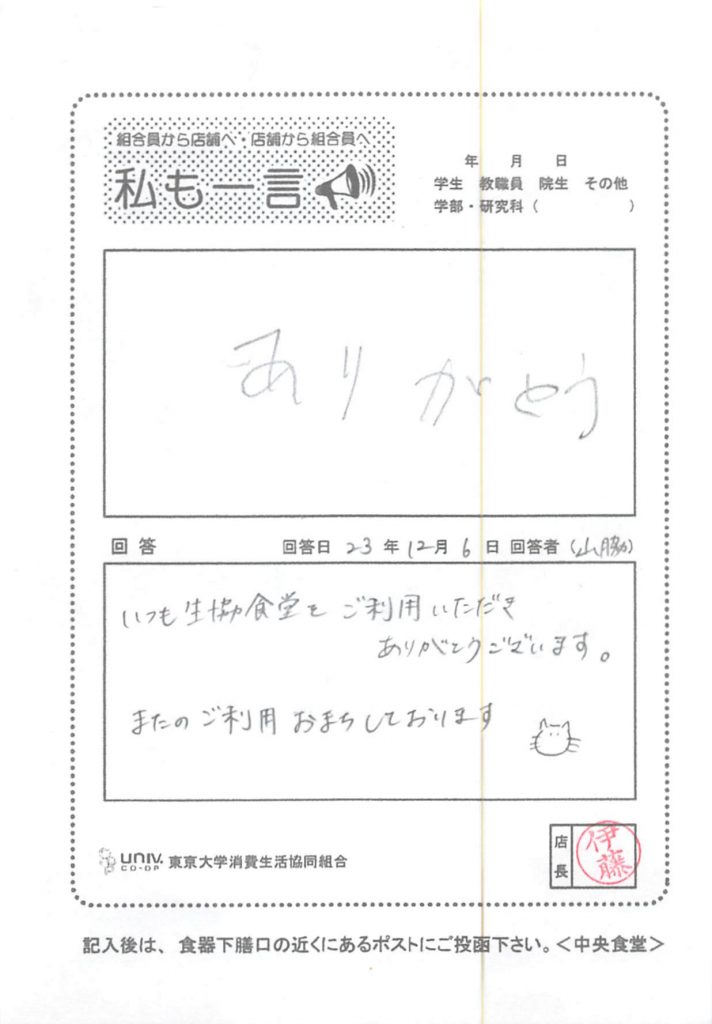 組合員から店舗へ・店舗から組合員へ
私も一言
年 月 日
学生 教職員 院生 その他
学部・研究科（ ）
ありがとう
回答 回答日 23年12月6日 回答者（山脇）
いつも生協食堂をご利用いただき
ありがとうございます。
またのご利用おまちしております
UNIV. CO-OP 東京大学消費生活協同組合
店長 伊藤
記入後は、食器下膳口の近くにあるポストにご投函下さい。＜中央食堂＞